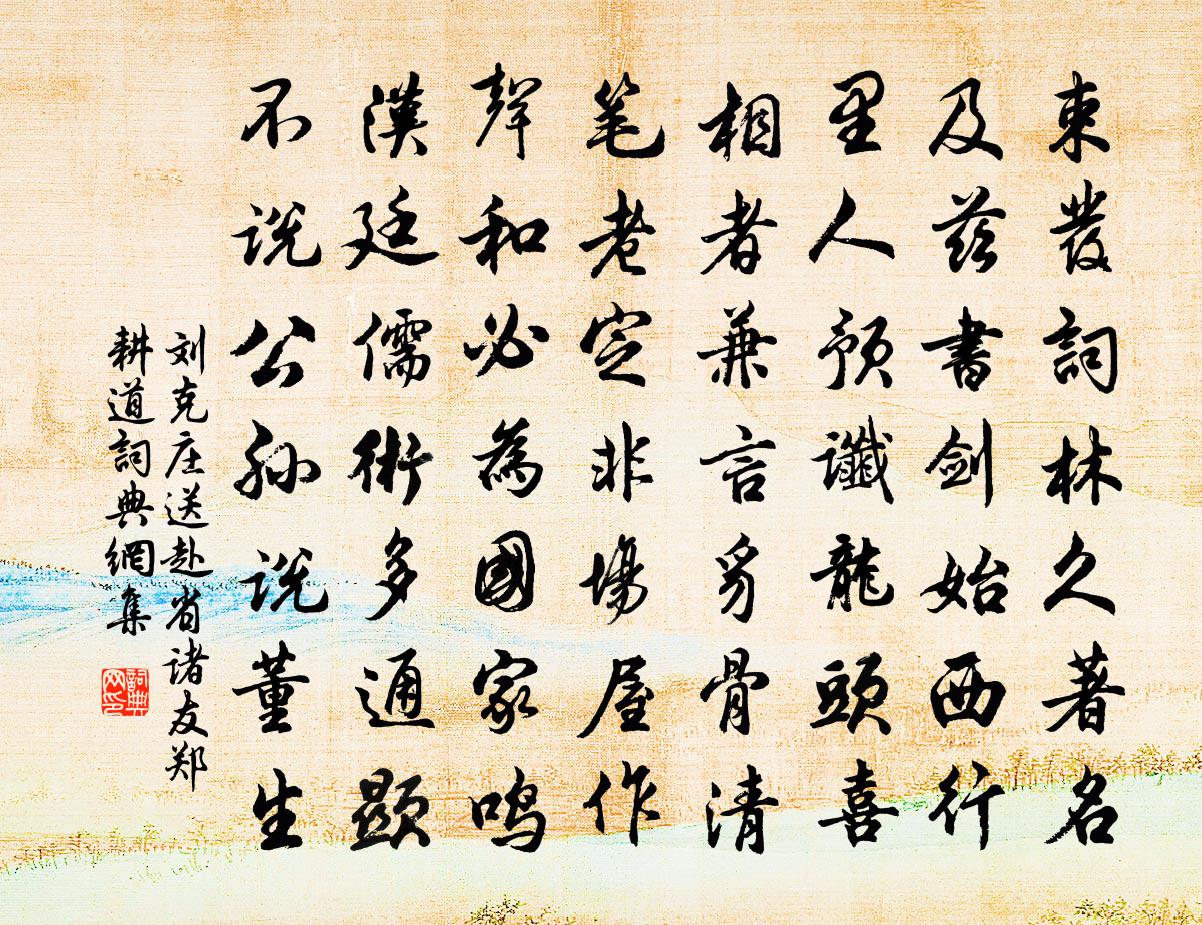 束發詞林久著名
及茲書劍始西行
里人預讖龍頭喜
相者兼言豸骨清
笔老定非場屋作
聲和必為國家鳴
漢廷儒術多通顯
不說公孫說董生
刘克庄送赴省诸友郑
耕道詞典網集
詞典网印